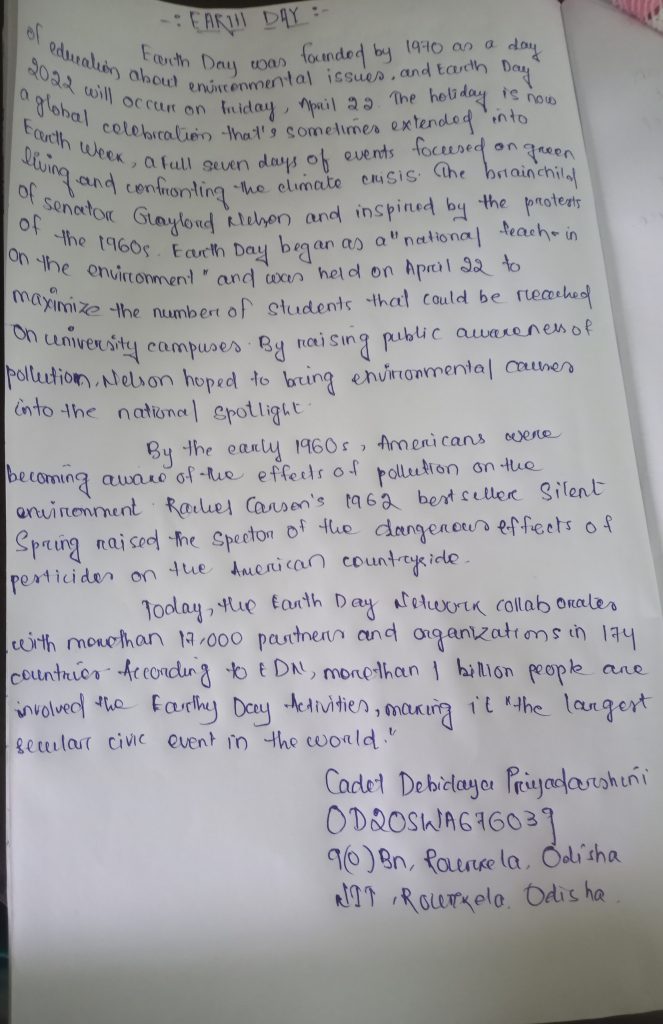 -: EARTH DAY :-
Earth Day was founded by 1970 as a day
of education about environmental issues, and Earth Day
2022 will occur on Friday, April 22. The holiday is now
a global celebration that's sometimes extended into
Earth Week, a full seven days of events focused on green
living and confronting the climate crisis. The brainchild
of senator Gaylord Nelson and inspired by the protests
of the 1960s. Earth Day began as a "national teach-in
on the environment" and was held on April 22 to
maximize the number of students that could be reached
on university campuses. By raising public awareness of
pollution, Nelson hoped to bring environmental causes
into the national spotlight.
By the early 1960s, Americans were
becoming aware of the effects of pollution on the
environment. Rachel Carson's 1962 bestseller Silent
Spring raised the specter of the dangerous effects of
pesticides on the American countryside.
Today, the Earth Day Network collaborates
with more than 17,000 partners and organizations in 174
countries. According to EDN, more than 1 billion people are
involved the Earthy Day Activities, making it "the largest
secular civic event in the world."
Cadet Debidaya Priyadarshini
OD20SWA676039
9(O) Bn, Rourkela, Odisha
NIT, Rourkela. Odisha.